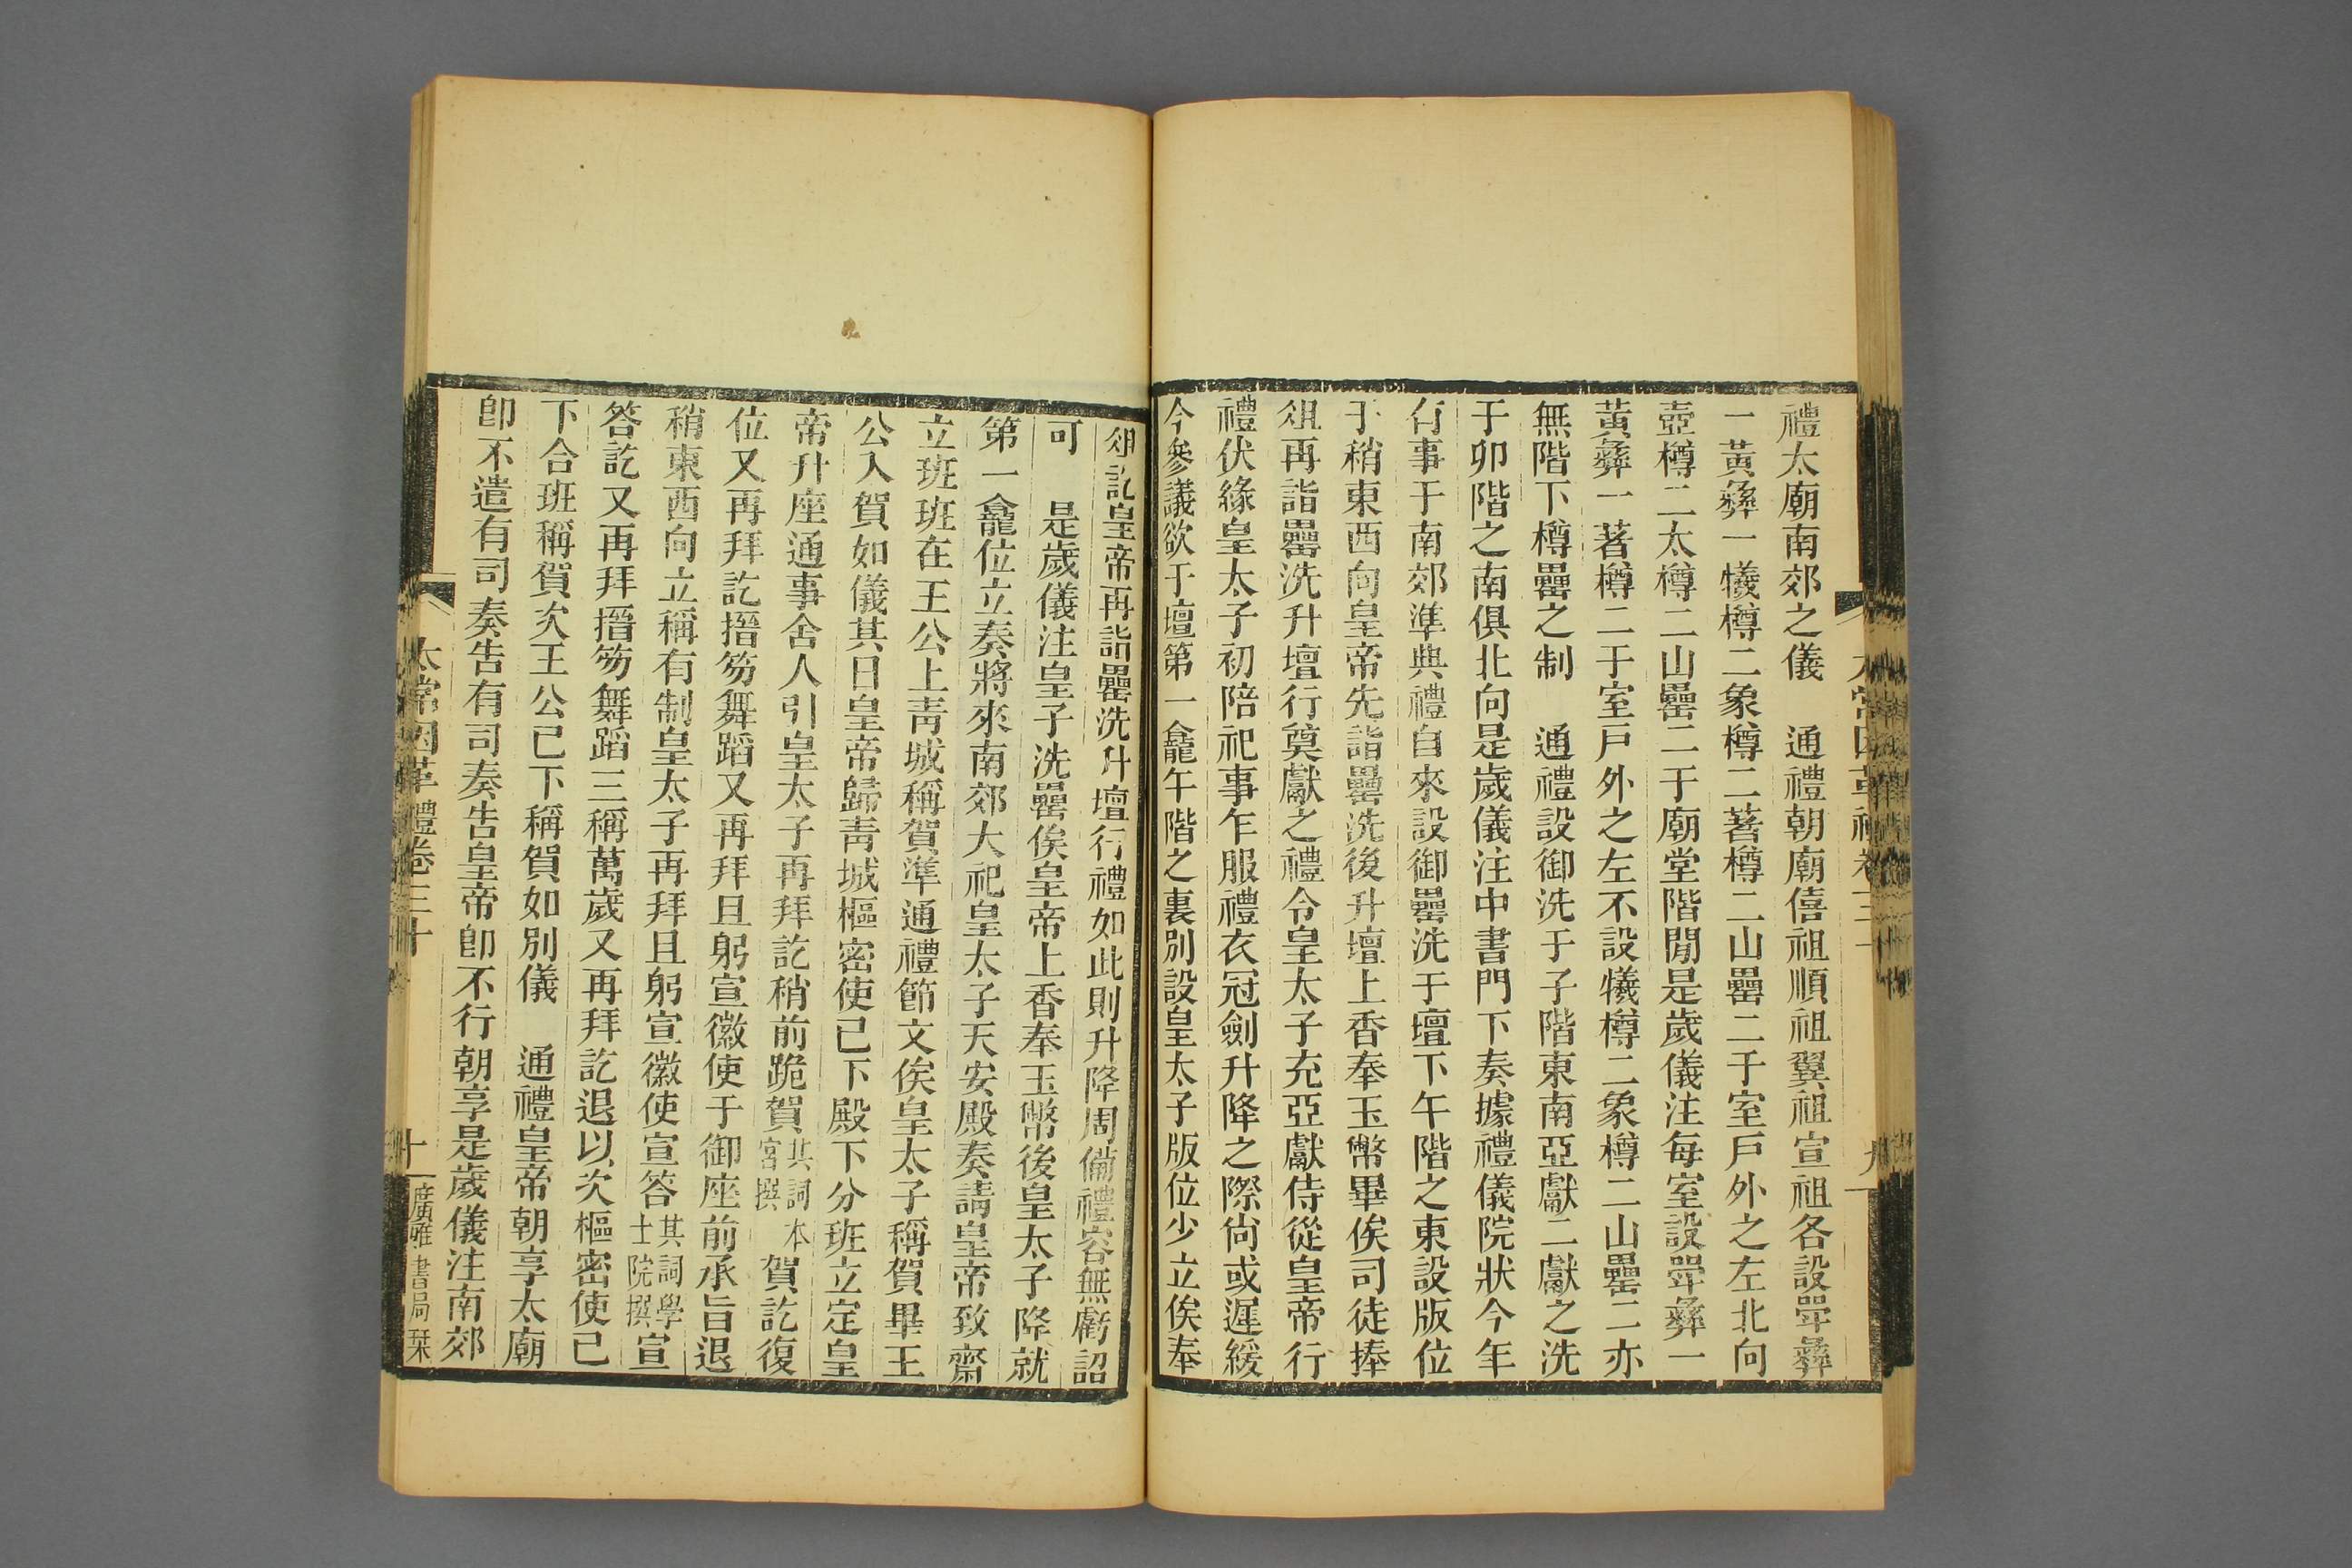 禮太廟南郊之儀　通禮朝廟僖祖順祖翼祖宣祖各設斝彝
一黃彝一犧樽二象樽二著樽二山罍二于室戶外之左北向
壺樽二太樽二山罍二于廟堂階閒是歲儀注每室設斝彝一
黃彝一著樽二于室戶外之左不設犧樽二象樽二山罍二亦
無階下樽罍之制　通禮設御洗于子階東南亞獻二獻之洗
于卯階之南俱北向是歲儀注中書門下奏據禮儀院狀今年
有事于南郊準典禮自來設御罍洗于壇下午階之東設版位
于稍東西向皇帝先詣罍洗後升壇上香奉玉幣畢俟司徒捧
俎再詣罍洗升壇行奠獻之禮令皇太子充亞獻侍從皇帝行
禮伏緣皇太子初陪祀事乍服禮衣冠劍升降之際尙或遲緩
今參議欲于壇第一龕午階之裏別設皇太子版位少立俟奉
俎訖皇帝再詣罍洗升壇行禮如此則升降周備禮容無虧詔
可　是歲儀注皇子洗罍俟皇帝上香奉玉幣後皇太子降就
第一龕位立奏將來南郊大祀皇太子天安殿奏請皇帝致齋
立班班在王公上靑城稱賀準通禮節文俟皇太子稱賀畢王
公入賀如儀其日皇帝歸靑城樞密使已下殿下分班立定皇
帝升座通事舍人引皇太子再拜訖稍前跪賀其詞本宮撰賀訖復
位又再拜訖搢笏舞蹈又再拜且躬宣徽使于御座前承旨退
稍東西向立稱有制皇太子再拜且躬宣徽使宣答其詞學士院撰宣
答訖又再拜搢笏舞蹈三稱萬歲又再拜訖退以次樞密使已
下合班稱賀次王公已下稱賀如別儀　通禮皇帝朝享太廟
卽不遣有司奏告有司奏告皇帝卽不行朝享是歲儀注南郊
太常因革禮卷三十
十一
廣雅書局栞